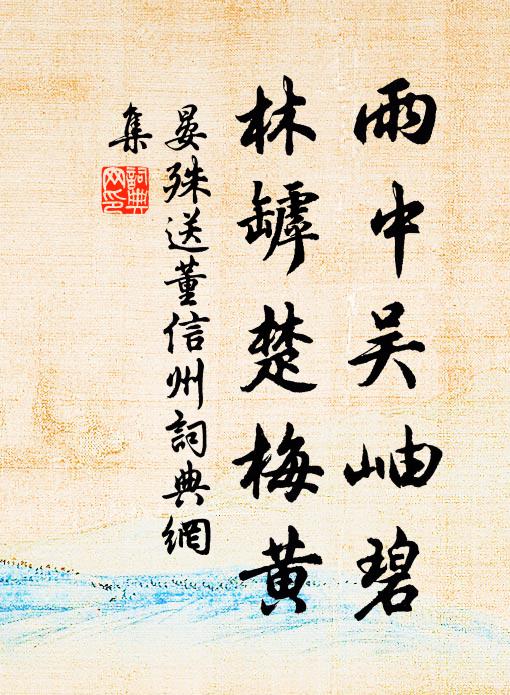 雨中吴岫碧
林罅楚梅黄
晏殊送董信州詞典網
集
詞典
网印